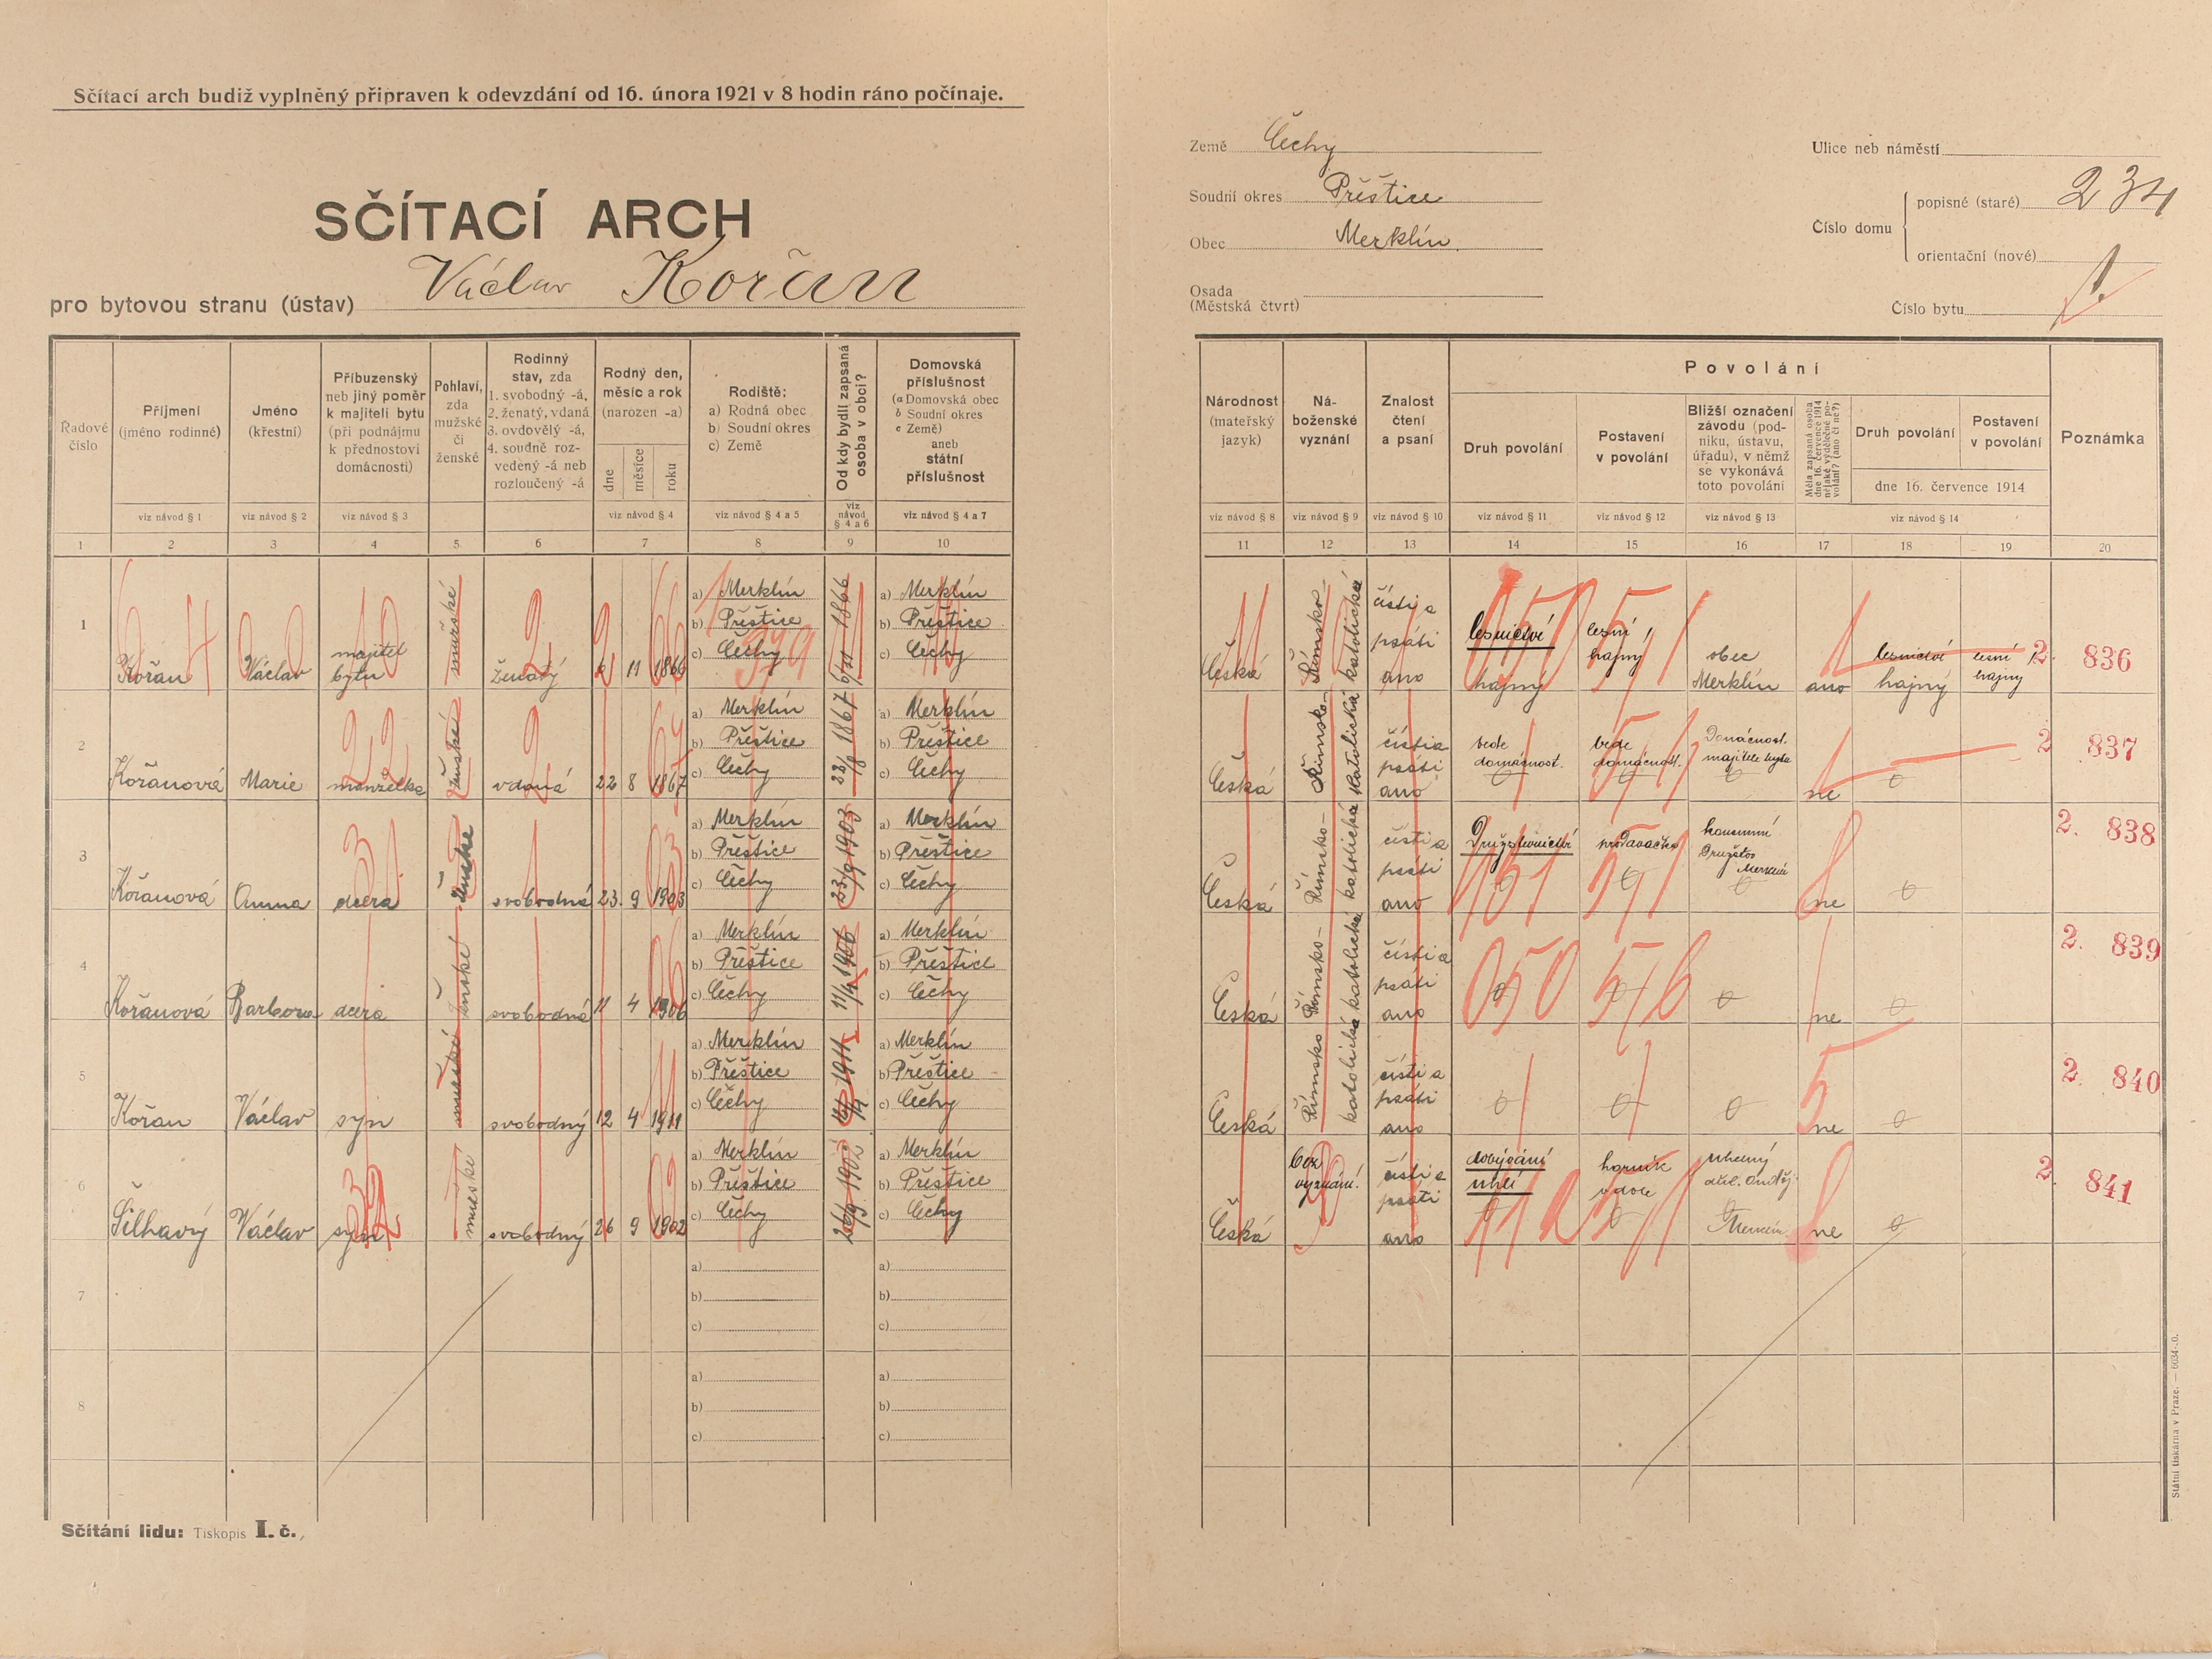 Sčítací arch budiž vyplněný připraven k odevzdání od 16. února 1921 v 8 hodin ráno počínaje.
SČÍTACÍ ARCH
pro bytovou stranu (ústav) Václav Kořan
Země Čechy
Soudní okres Přeštice
Obec Merklín
Osada
(Městská čtvrt)
Ulice neb náměstí
Číslo domu
popisné (staré) 234
orientační (nové)
Číslo bytu 1.
Řadové číslo
Příjmení (jméno rodinné)
Jméno (křestní)
Příbuzenský neb jiný poměr k majiteli bytu (při podnájmu k přednostovi domácnosti)
Pohlaví, zda mužské či ženské
Rodinný stav, zda 1. svobodný -á, 2. ženatý, vdaná 3. ovdovělý -á, 4. soudně rozvedený -á neb rozloučený -á
Rodný den, měsíc a rok (narozen -a)
dne měsíce roku
Rodiště: a) Rodná obec b) Soudní okres c) Země
Od kdy bydlí zapsaná osoba v obci?
Domovská příslušnost (a Domovská obec b Soudní okres c Země) aneb státní příslušnost
viz návod § 1 viz návod § 2 viz návod § 3 viz návod § 4 viz návod § 4 a 5 viz návod § 4 a 6 viz návod § 4 a 7
1 2 3 4 5 6 7 8 9 10
Národnost (mateřský jazyk)
Náboženské vyznání
Znalost čtení a psaní
Povolání
Druh povolání
Postavení v povolání
Bližší označení závodu (podniku, ústavu, úřadu), v němž se vykonává toto povolání
Měla zapsaná osoba dne 16. července 1914 nějaké výdělečné povolání? (ano či ne?)
Druh povolání
Postavení v povolání
dne 16. července 1914
Poznámka
viz návod § 8 viz návod § 9 viz návod § 10 viz návod § 11 viz návod § 12 viz návod § 13 viz návod § 14
11 12 13 14 15 16 17 18 19 20
1 Kořan Václav majitel bytu mužské ženatý 2 11 1866 a) Merklín b) Přeštice c) Čechy 1866 a) Merklín b) Přeštice c) Čechy
Česká Římsko-katolická čísti a psáti ano lesnictví hajný lesní hajný obec Merklín ano lesnictví hajný lesní hajný 2. 836
2 Kořanová Marie manželka ženské vdaná 22 8 1867 a) Merklín b) Přeštice c) Čechy 22/8 1867 a) Merklín b) Přeštice c) Čechy
Česká Římsko-katolická čísti a psáti ano vede domácnost. vede domácnost. Domácnost. majitele bytu ne 2. 837
3 Kořanová Anna dcera ženské svobodná 23. 9 1903 a) Merklín b) Přeštice c) Čechy 23/9 1903 a) Merklín b) Přeštice c) Čechy
Česká Římsko-katolická čísti a psáti ano Družstevnictví prodavačka konsumní Družstvo Merklín ne 2. 838
4 Kořanová Barbora dcera ženské svobodná 11 4 1906 a) Merklín b) Přeštice c) Čechy 11/4 1906 a) Merklín b) Přeštice c) Čechy
Česká Římsko-katolická čísti a psáti ano ne 2. 839
5 Kořan Václav syn mužské svobodný 12 4 1911 a) Merklín b) Přeštice c) Čechy 1911 a) Merklín b) Přeštice c) Čechy
Česká Římsko katolická čísti a psáti ano ne 2. 840
6 Šilhavý Václav syn mužské svobodný 26 9 1902 a) Merklín b) Přeštice c) Čechy 26/9 1902 a) Merklín b) Přeštice c) Čechy
Česká bez vyznání. čísti a psáti ano dobývání uhlí horník v dole Merklín ne 2. 841
7 a) b) c) a) b) c)
8 a) b) c) a) b) c)
Sčítání lidu: Tiskopis I. č.,
Státní tiskárna v Praze. — 6034-.0.